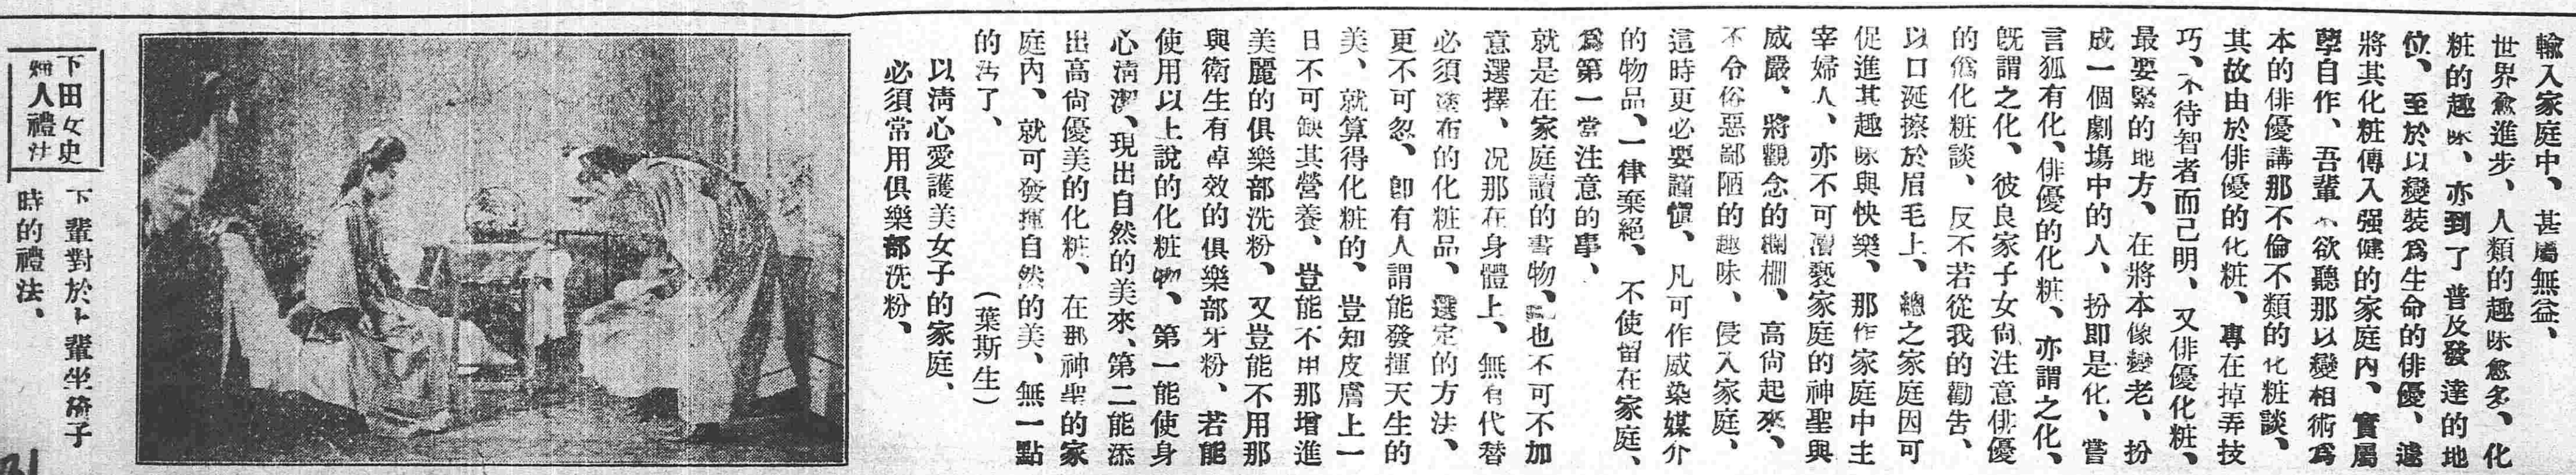 輸入家庭中、甚屬無益、
世界愈進步、人類的趣味愈多、化
粧的趣味、亦到了普及發達的地
位、至於以變裝爲生命的俳優、遽
將其化粧傳入强健的家庭內、實屬
孽自作、吾輩不欲聽那以變相術爲
本的俳優講那不倫不類的化粧談、
其故由於俳優的化粧、專在掉弄技
巧、不待智者而己明、又俳優化粧、
最要緊的地方、在將本像變老、扮
成一個劇塲中的人、扮即是化、嘗
言狐有化、俳優的化粧、亦謂之化、
旣謂之化、彼良家子女尙注意俳優
的僞化粧談、反不若從我的勸吿、
以口涎擦於眉毛上、總之家庭因可
促進其趣味與快樂、那作家庭中主
宰婦人、亦不可瀆褻家庭的神聖與
威嚴、將觀念的欄柵、高尙起來、
不令俗惡鄙陋的趣味、侵入家庭、
這時更必要謹愼、凡可作威染媒介
的物品、一律棄絕、不使留在家庭、
爲第一當注意的事、
就是在家庭讀的書物、也不可不加
意選擇、况那在身體上、無有代替
必須塗布的化粧品、選定的方法、
更不可忽、卽有人謂能發揮天生的
美、就算得化粧的、豈知皮膚上一
日不可缺其營養、豈能不用那增進
美麗的俱樂部洗粉、又豈能不用那
與衛生有卓效的俱樂部牙粉、若能
使用以上說的化粧物、第一能使身
心淸潔、現出自然的美來、第二能添
出高尙優美的化粧、在那神聖的家
庭內、就可發揮自然的美、無一點
的沾了、 (葉斯生)
以淸心愛護美女子的家庭、
必須常用俱樂部洗粉、
下田女史
婦人禮法
下輩對於上輩坐椅子
時的禮法、